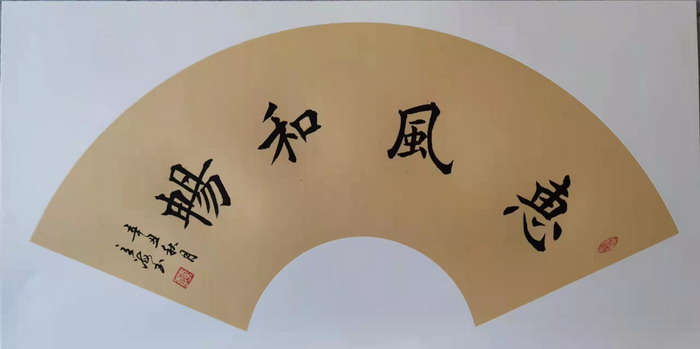 惠風和暢
辛丑秋月
海书